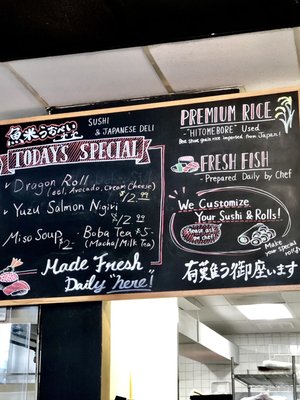 魚米
SUSHI
& JAPANESE DELI
TODAY'S SPECIAL
Dragon Roll
(eel, Avocado, cream cheese)
$12.99
Yuzu Salmon Nigiri
$12.99
Miso Soup
$2.-
Boba Tea $5.-
(Macha/Milk Tea)
Made Fresh
Daily "here!"
PREMIUM RICE
-"HITOMEBORE" Used
Best Short grain rice imported from Japan!
FRESH FISH
- Prepared Daily by Chef
We Customize
Your Sushi & Rolls!
Please ask
our chef!
Make your
special
有難う御座います